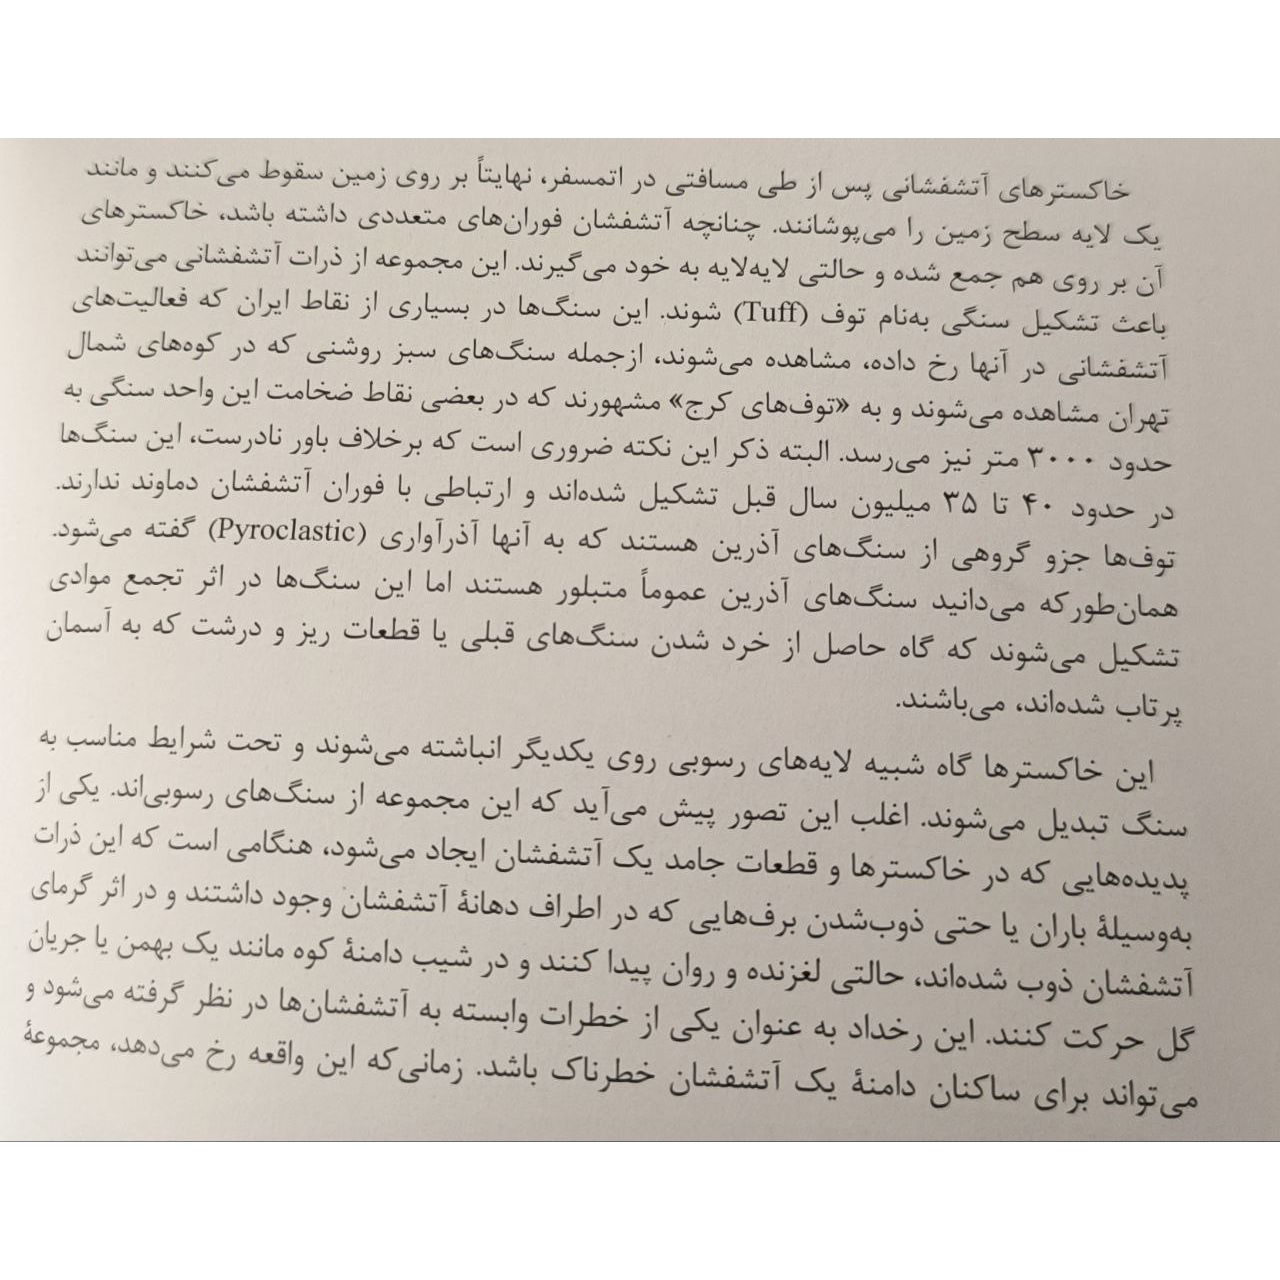 خاکسترهای آتشفشانی پس از طی مسافتی در اتمسفر، نهایتاً بر روی زمین سقوط می‌کنند و مانند
یک لایه سطح زمین را می‌پوشانند. چنانچه آتشفشان فوران‌های متعددی داشته باشد، خاکسترهای
آن بر روی هم جمع شده و حالتی لایه‌لایه به خود می‌گیرند. این مجموعه از ذرات آتشفشانی می‌توانند
باعث تشکیل سنگی به‌نام توف (Tuff) شوند. این سنگ‌ها در بسیاری از نقاط ایران که فعالیت‌های
آتشفشانی در آنها رخ داده، مشاهده می‌شوند، ازجمله سنگ‌های سبز روشنی که در کوه‌های شمال
تهران مشاهده می‌شوند و به «توف‌های کرج» مشهورند که در بعضی نقاط ضخامت این واحد سنگی به
حدود ۳۰۰۰ متر نیز می‌رسد. البته ذکر این نکته ضروری است که برخلاف باور نادرست، این سنگ‌ها
در حدود ۴۰ تا ۳۵ میلیون سال قبل تشکیل شده‌اند و ارتباطی با فوران آتشفشان دماوند ندارند.
توف‌ها جزو گروهی از سنگ‌های آذرین هستند که به آنها آذرآواری (Pyroclastic) گفته می‌شود.
همان‌طورکه می‌دانید سنگ‌های آذرین عموماً متبلور هستند اما این سنگ‌ها در اثر تجمع موادی
تشکیل می‌شوند که گاه حاصل از خرد شدن سنگ‌های قبلی یا قطعات ریز و درشت که به آسمان
پرتاب شده‌اند، می‌باشند.
این خاکسترها گاه شبیه لایه‌های رسوبی روی یکدیگر انباشته می‌شوند و تحت شرایط مناسب به
سنگ تبدیل می‌شوند. اغلب این تصور پیش می‌آید که این مجموعه از سنگ‌های رسوبی‌اند. یکی از
پدیده‌هایی که در خاکسترها و قطعات جامد یک آتشفشان ایجاد می‌شود، هنگامی است که این ذرات
به‌وسیلهٔ باران یا حتی ذوب‌شدن برف‌هایی که در اطراف دهانهٔ آتشفشان وجود داشتند و در اثر گرمای
آتشفشان ذوب شده‌اند، حالتی لغزنده و روان پیدا کنند و در شیب دامنهٔ کوه مانند یک بهمن یا جریان
گل حرکت کنند. این رخداد به عنوان یکی از خطرات وابسته به آتشفشان‌ها در نظر گرفته می‌شود و
می‌تواند برای ساکنان دامنهٔ یک آتشفشان خطرناک باشد. زمانی‌که این واقعه رخ می‌دهد، مجموعهٔ